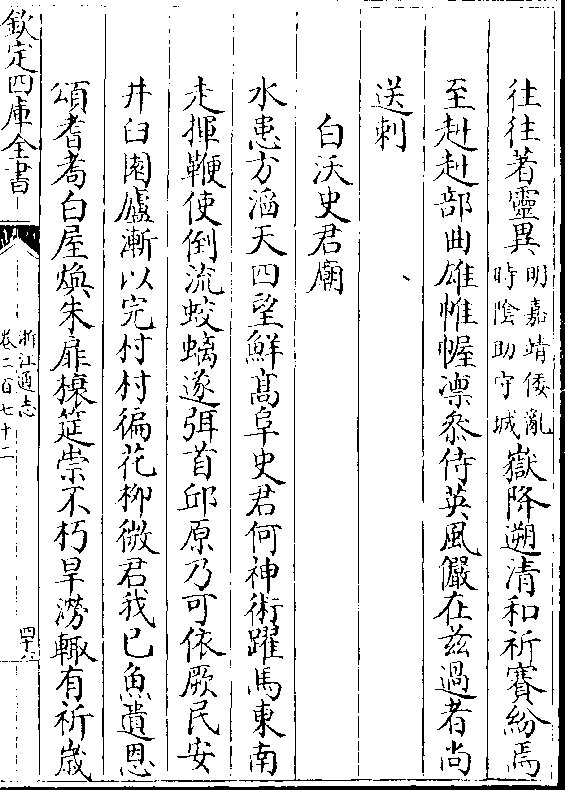 往往著靈異明嘉靖倭亂時陰助守城嶽降遡清和祈賽紛焉
至赳赳部曲雄帷幄凛叅侍英風儼在兹過者尚
送刺
白沃史君廟
水患方滔天四望鮮髙阜史君何神術躍馬東南
走揮鞭使倒流蛟螭遂弭首邱原乃可依厥民安
井臼園廬漸以完村村徧花柳微君我已魚遺恩
頌耆耈白屋煥朱扉榱筵崇不朽旱澇輙有祈歳
欽定四庫全書
浙江通志
卷二百七十二